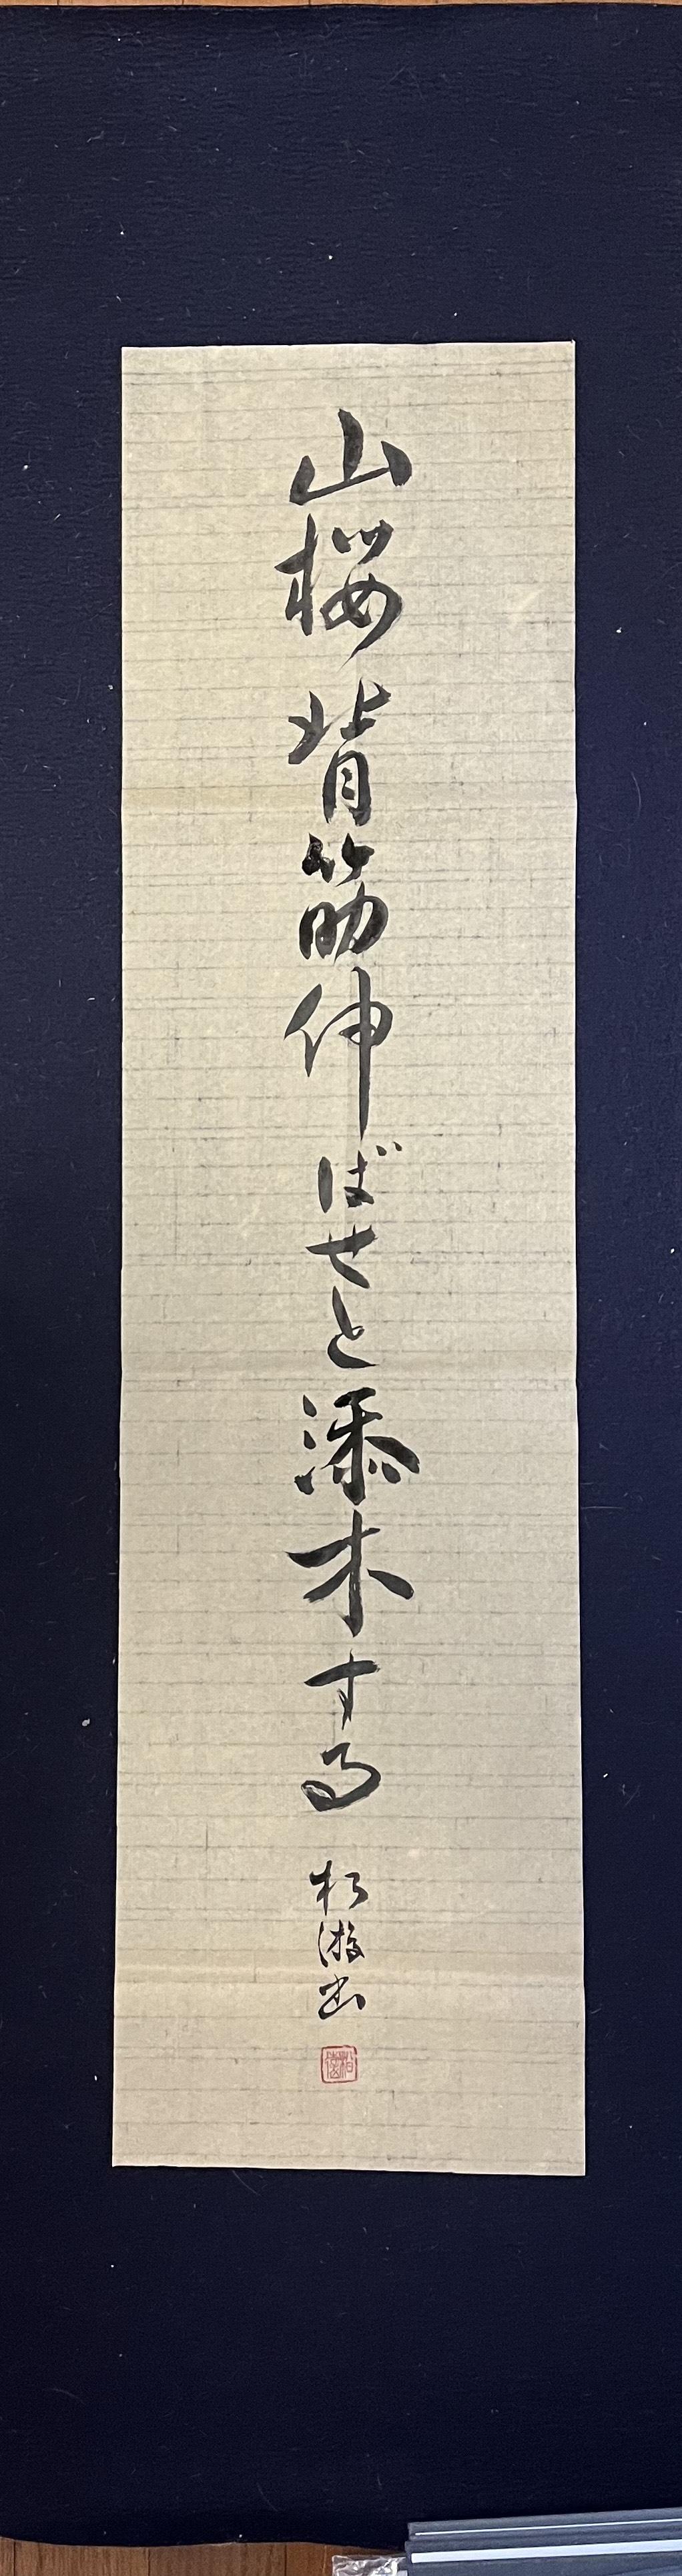 山桜背筋伸ばせと添木する